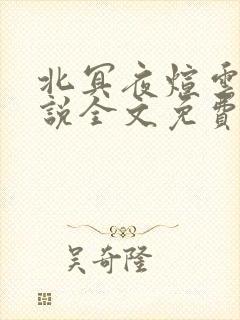 北冥夜煊雲
說全文免費
吳奇隆